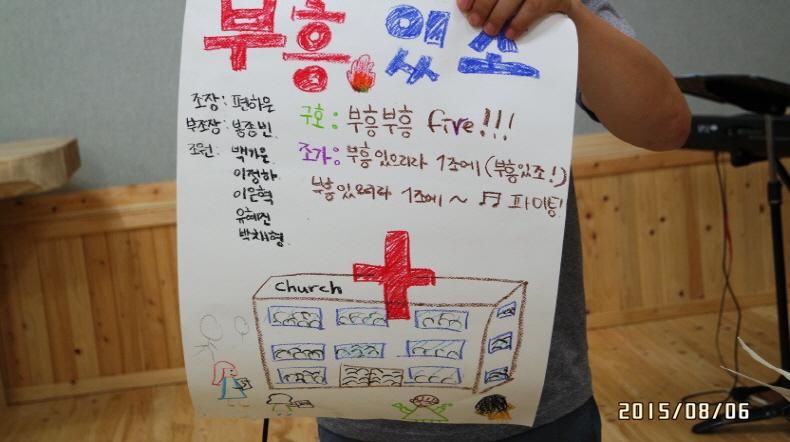 부흥 있조
조장: 편하은
부조장: 봉종빈
조원: 백가운
이정하
이은혁
유혜진
박채형
구호: 부흥부흥 five!!!
조가: 부흥있으리라 1조에 (부흥있조!)
부흥있으리라 1조에~ ♬ 파이팅!
church
2015/08/06